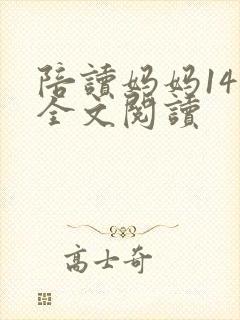 陪讀妈妈14
全文閱讀
高士奇